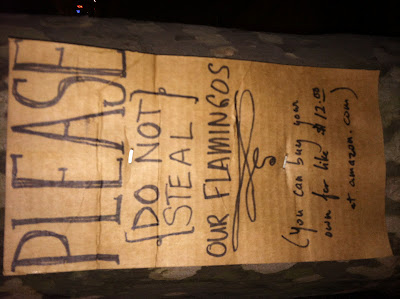 PLEASE
[DO NOT
STEAL]
OUR FLAMINGOS
(You can buy your
own for like $12.00
at amazon.com)